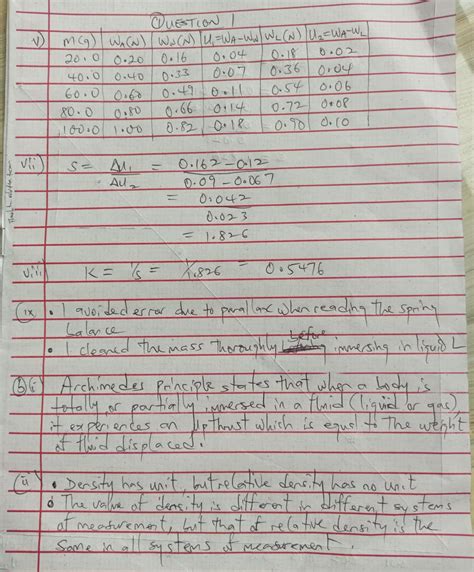 QUESTION 1
v) M(g) WA(N) WW(N) U1=WA-WW WL(N) U2=WA-WL
20.0 0.20 0.16 0.04 0.18 0.02
40.0 0.40 0.33 0.07 0.36 0.04
60.0 0.60 0.49 0.11 0.54 0.06
80.0 0.80 0.66 0.14 0.72 0.08
100.0 1.00 0.82 0.18 0.90 0.10
vii) S = ΔU1 / ΔU2 = 0.162 - 0.12 / 0.09 - 0.067
= 0.042 / 0.023
= 1.826
viii) K = 1/s = 1/1.826 = 0.5476
ix • I avoided error due to parallax when reading the spring
balance
• I cleaned the mass thoroughly before immersing in liquid L
b i) Archimedes principle states that when a body is
totally or partially immersed in a fluid (liquid or gas)
it experiences an Upthrust which is equal to the weight
of fluid displaced.
ii • Density has unit, but relative density has no unit
• The value of density is different in different systems
of measurement, but that of relative density is the
same in all systems of measurement.